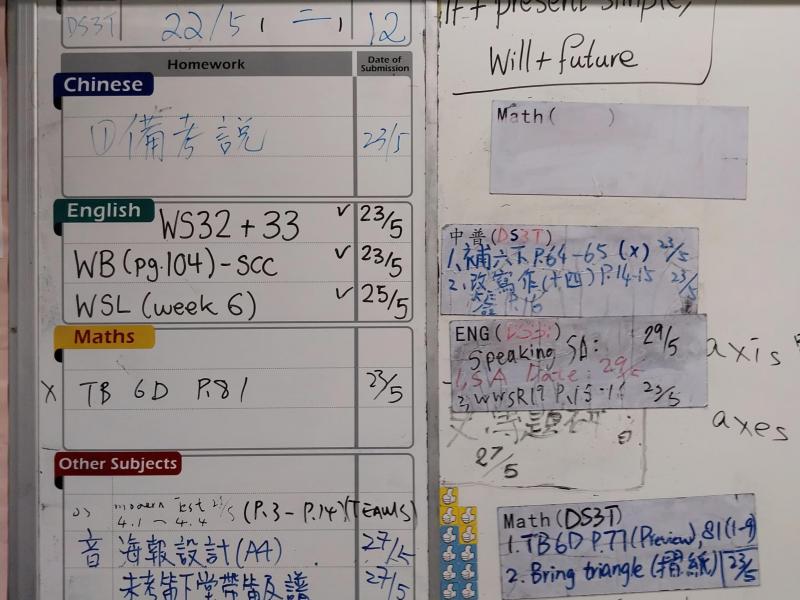 DS3T 22/5, 二, 12
Homework Date of Submission
Chinese
①備考說 23/5
English
WS32 + 33 ✓ 23/5
WB (pg.104) - SCC ✓ 23/5
WSL (week 6) ✓ 25/5
Maths
X TB 6D P.81 23/5
Other Subjects
modern Test
4.1 ~ 4.4 (P.3-P.14)(TEAMS)
音 海報設計(A4) 27/5
未考笛下堂帶笛及譜 27/5
If + present simple,
Will + future
Math( )
中普(DS3T)
1. 補六下 P.64-65 (x) 23/5
2. 改寫作(十四) P.14-15 23/5
P.16
ENG(DS3T)
Speaking SA: 29/5
1. SA Date: 29/5
2. WWSR19 P.15-16 23/5
27/5
axis
axes
Math(DS3T)
1. TB 6D P.77 (Preview), 81 (1-9)
2. Bring triangle (摺紙) 23/5